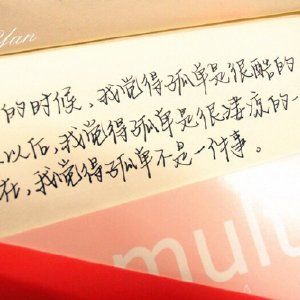 Yan
的时候，我觉得孤单是很酷的
以后，我觉得孤单是很凄凉的一
在，我觉得孤单不是一个事。
mult